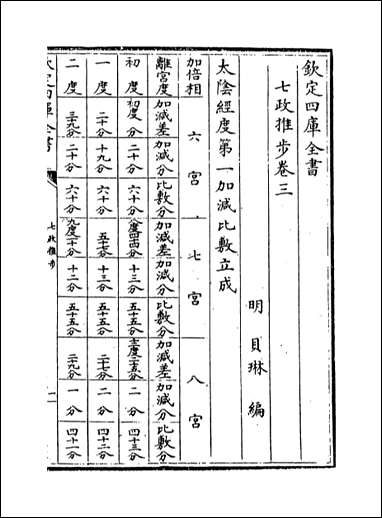 欽定四庫全書
七政推步卷三
明 貝琳 編
太陰經度第一加減比敷立成
加倍相 六宮 七宮 八宮
離宮度 加減差 加減分 比敷分 加減差 加減分 比敷分 加減差 加減分 比敷分
初度 初度分 二十分 六十分 八度四十四分 十三分 五十五分 二分 四十三分
一度 二十分 十九分 六十分 五十七分 十三分 五十五分 二十七分 二分 四十二分
二度 三十九分 二十分 六十分 九度一十分 十二分 五十五分 二十九分 一分 四十一分
欽定四庫全書
七政推步
一